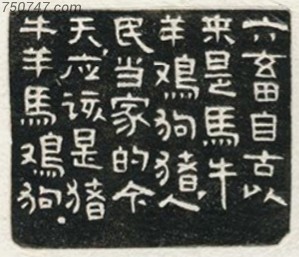 750747.com
六畜自古以
来是馬牛
羊鸡狗猪,人
民当家的今
天,应该是猪
牛羊馬鸡狗.